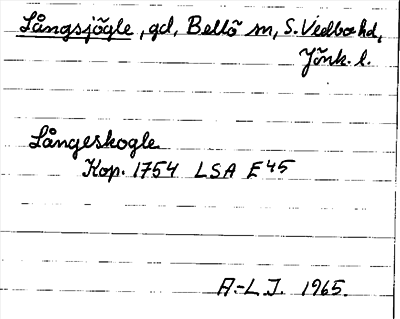 Långsjögle, gd, Bellö sn, S. Vedbo hd,
Jönk. l.
Långeskogle
Kop. 1754 LSA E45
A.-L.J. 1965.